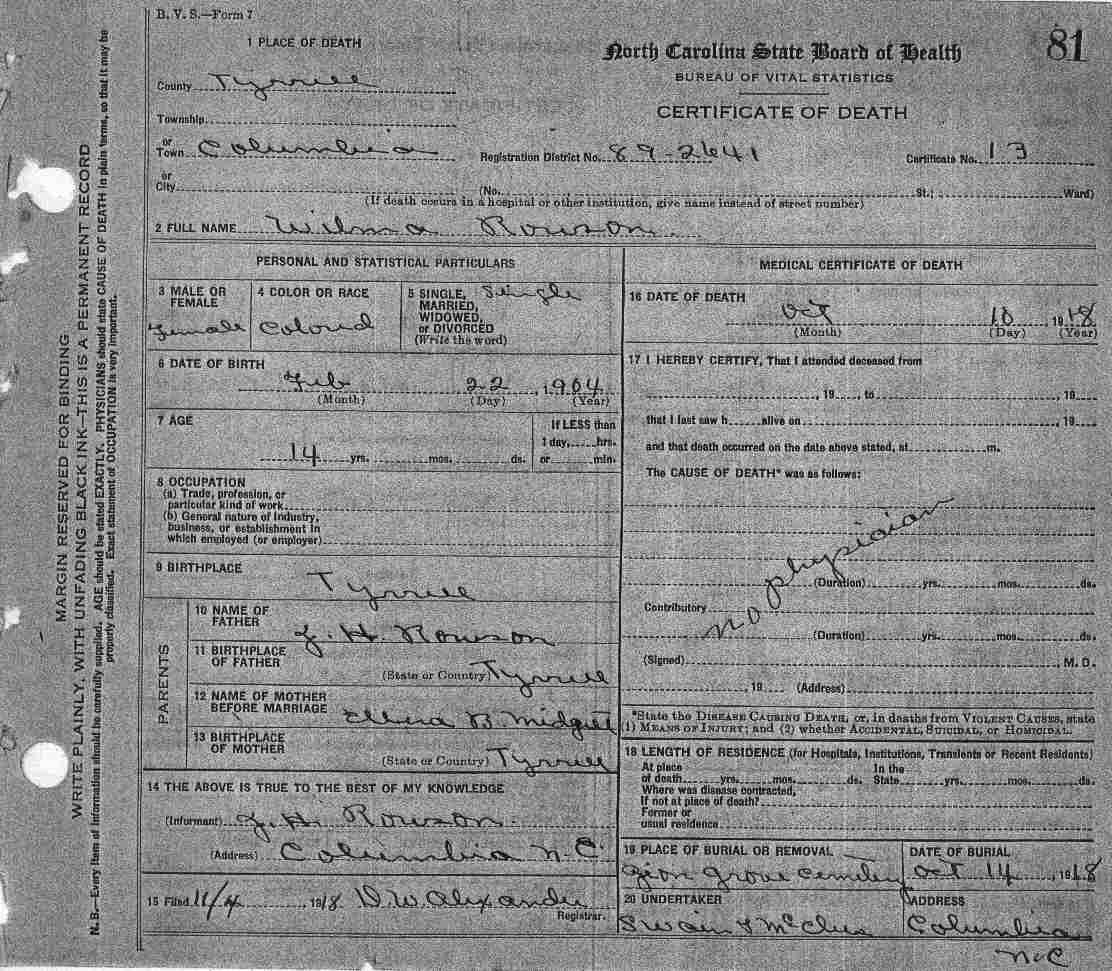 B. V. S.—Form 7
81
North Carolina State Board of Health
BUREAU OF VITAL STATISTICS
CERTIFICATE OF DEATH
1 PLACE OF DEATH
County Tyrrell
Township
or Town Columbia
Registration District No. 89-2641
Certificate No. 13
or City (No. St.; Ward)
(If death occurs in a hospital or other institution, give name instead of street number)
2 FULL NAME Wilma Rowson
PERSONAL AND STATISTICAL PARTICULARS
3 MALE OR FEMALE
Female
4 COLOR OR RACE
Colord
5 SINGLE, Single
MARRIED,
WIDOWED,
or DIVORCED
(Write the word)
6 DATE OF BIRTH
Feb 22, 1904
(Month) (Day) (Year)
7 AGE
If LESS than
1 day, hrs.
14 yrs. mos. ds. or min.
8 OCCUPATION
(a) Trade, profession, or
particular kind of work
(b) General nature of Industry,
business, or establishment in
which employed (or employer)
9 BIRTHPLACE
Tyrrell
PARENTS
10 NAME OF
FATHER J. H. Rowson
11 BIRTHPLACE
OF FATHER
(State or Country) Tyrrell
12 NAME OF MOTHER
BEFORE MARRIAGE B. Midgett
13 BIRTHPLACE
OF MOTHER
(State or Country) Tyrrell
14 THE ABOVE IS TRUE TO THE BEST OF MY KNOWLEDGE
(Informant) J. H. Rowson
(Address) Columbia N.C.
15 Filed 11/4, 1918 D. W. Alexander
Registrar.
MEDICAL CERTIFICATE OF DEATH
16 DATE OF DEATH
Oct 10, 1918
(Month) (Day) (Year)
17 I HEREBY CERTIFY, That I attended deceased from
, 19 , to , 19
that I last saw h alive on , 19
and that death occurred on the date above stated, at m.
The CAUSE OF DEATH* was as follows:
no physician
(Duration) yrs. mos. ds.
Contributory
(Duration) yrs. mos. ds.
(Signed) , M. D.
, 19 (Address)
*State the DISEASE CAUSING DEATH, or, in deaths from VIOLENT CAUSES, state
1) MEANS OF INJURY; and (2) whether ACCIDENTAL, SUICIDAL, or HOMICIDAL.
18 LENGTH OF RESIDENCE (for Hospitals, Institutions, Transients or Recent Residents)
At place In the
of death yrs. mos. ds. State yrs. mos. ds.
Where was disease contracted,
If not at place of death?
Former or
usual residence
19 PLACE OF BURIAL OR REMOVAL
Zion Grove Cemetey
DATE OF BURIAL
Oct 14, 1918
20 UNDERTAKER
Swain &
ADDRESS
Columbia
N.C
MARGIN RESERVED FOR BINDING
WRITE PLAINLY, WITH UNFADING BLACK INK—THIS IS A PERMANENT RECORD
N. B.—Every item of information should be carefully supplied. AGE should be stated EXACTLY. PHYSICIANS should state CAUSE OF DEATH in plain terms, so that it may be
properly classified. Exact statement of OCCUPATION is very important.